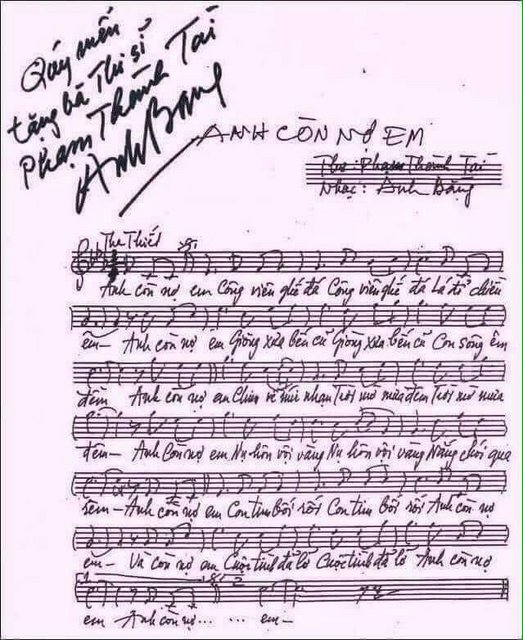 Quý mến
tặng bà Thi sĩ
Phạm Thành Tài
Anh Bằng
ANH CÒN NỢ EM
Thơ: Phạm Thành Tài
Nhạc: Anh Bằng
Tha Thiết
Anh còn nợ em Công viên ghế đá Công viên ghế đá lá đổ chiều
êm – Anh còn nợ em Giòng xưa bến cũ Giòng xưa bến cũ Con sông êm
đềm Anh còn nợ em Chim về núi nhạn Trời mờ mưa đêm Trời mờ mưa
đêm – Anh Còn nợ em Nụ hôn vội vàng Nụ hôn vội vàng Nắng chói qua
rèm – Anh còn nợ em Con tim bối rối Con tim bối rối Anh còn nợ
em – Và còn nợ em Cuộc tình đã lỡ Cuộc tình đã lỡ Anh còn nợ
1 2
em Anh còn nợ ... ... em –